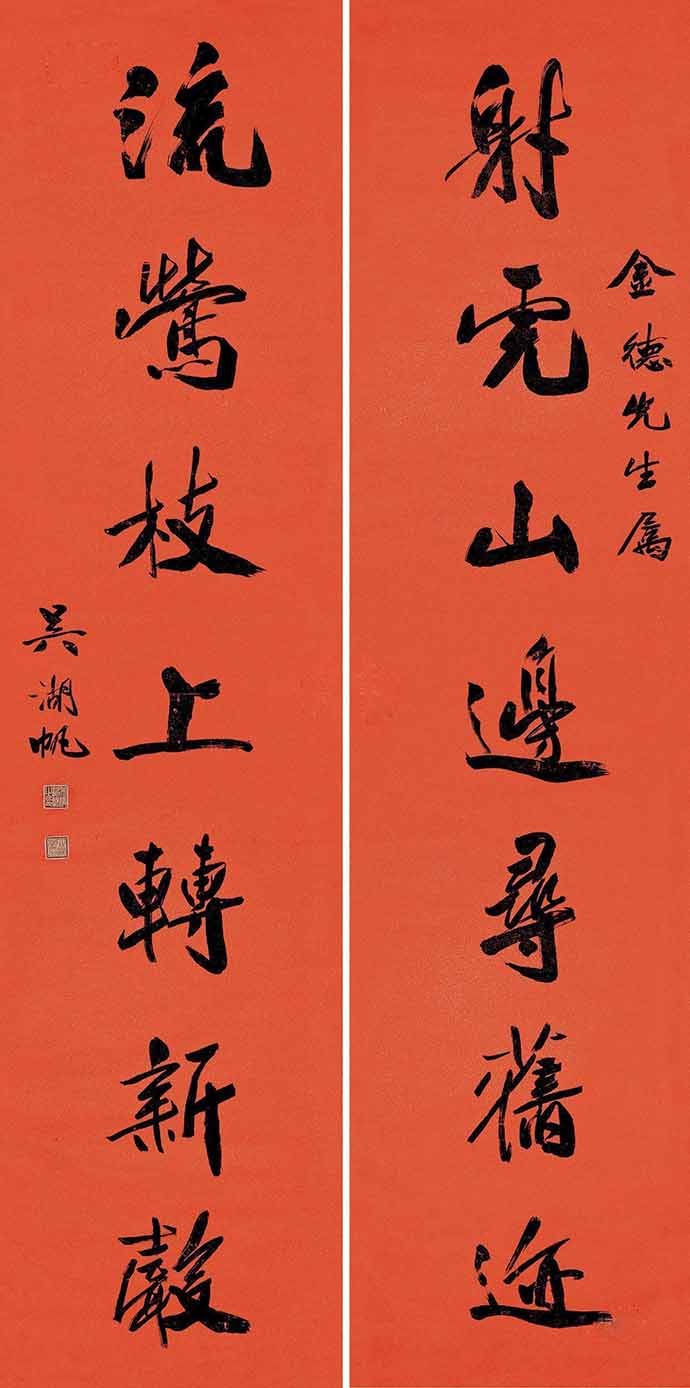 金德先生属
射虎山邊尋舊迹
流鶯枝上轉新聲
吳湖帆